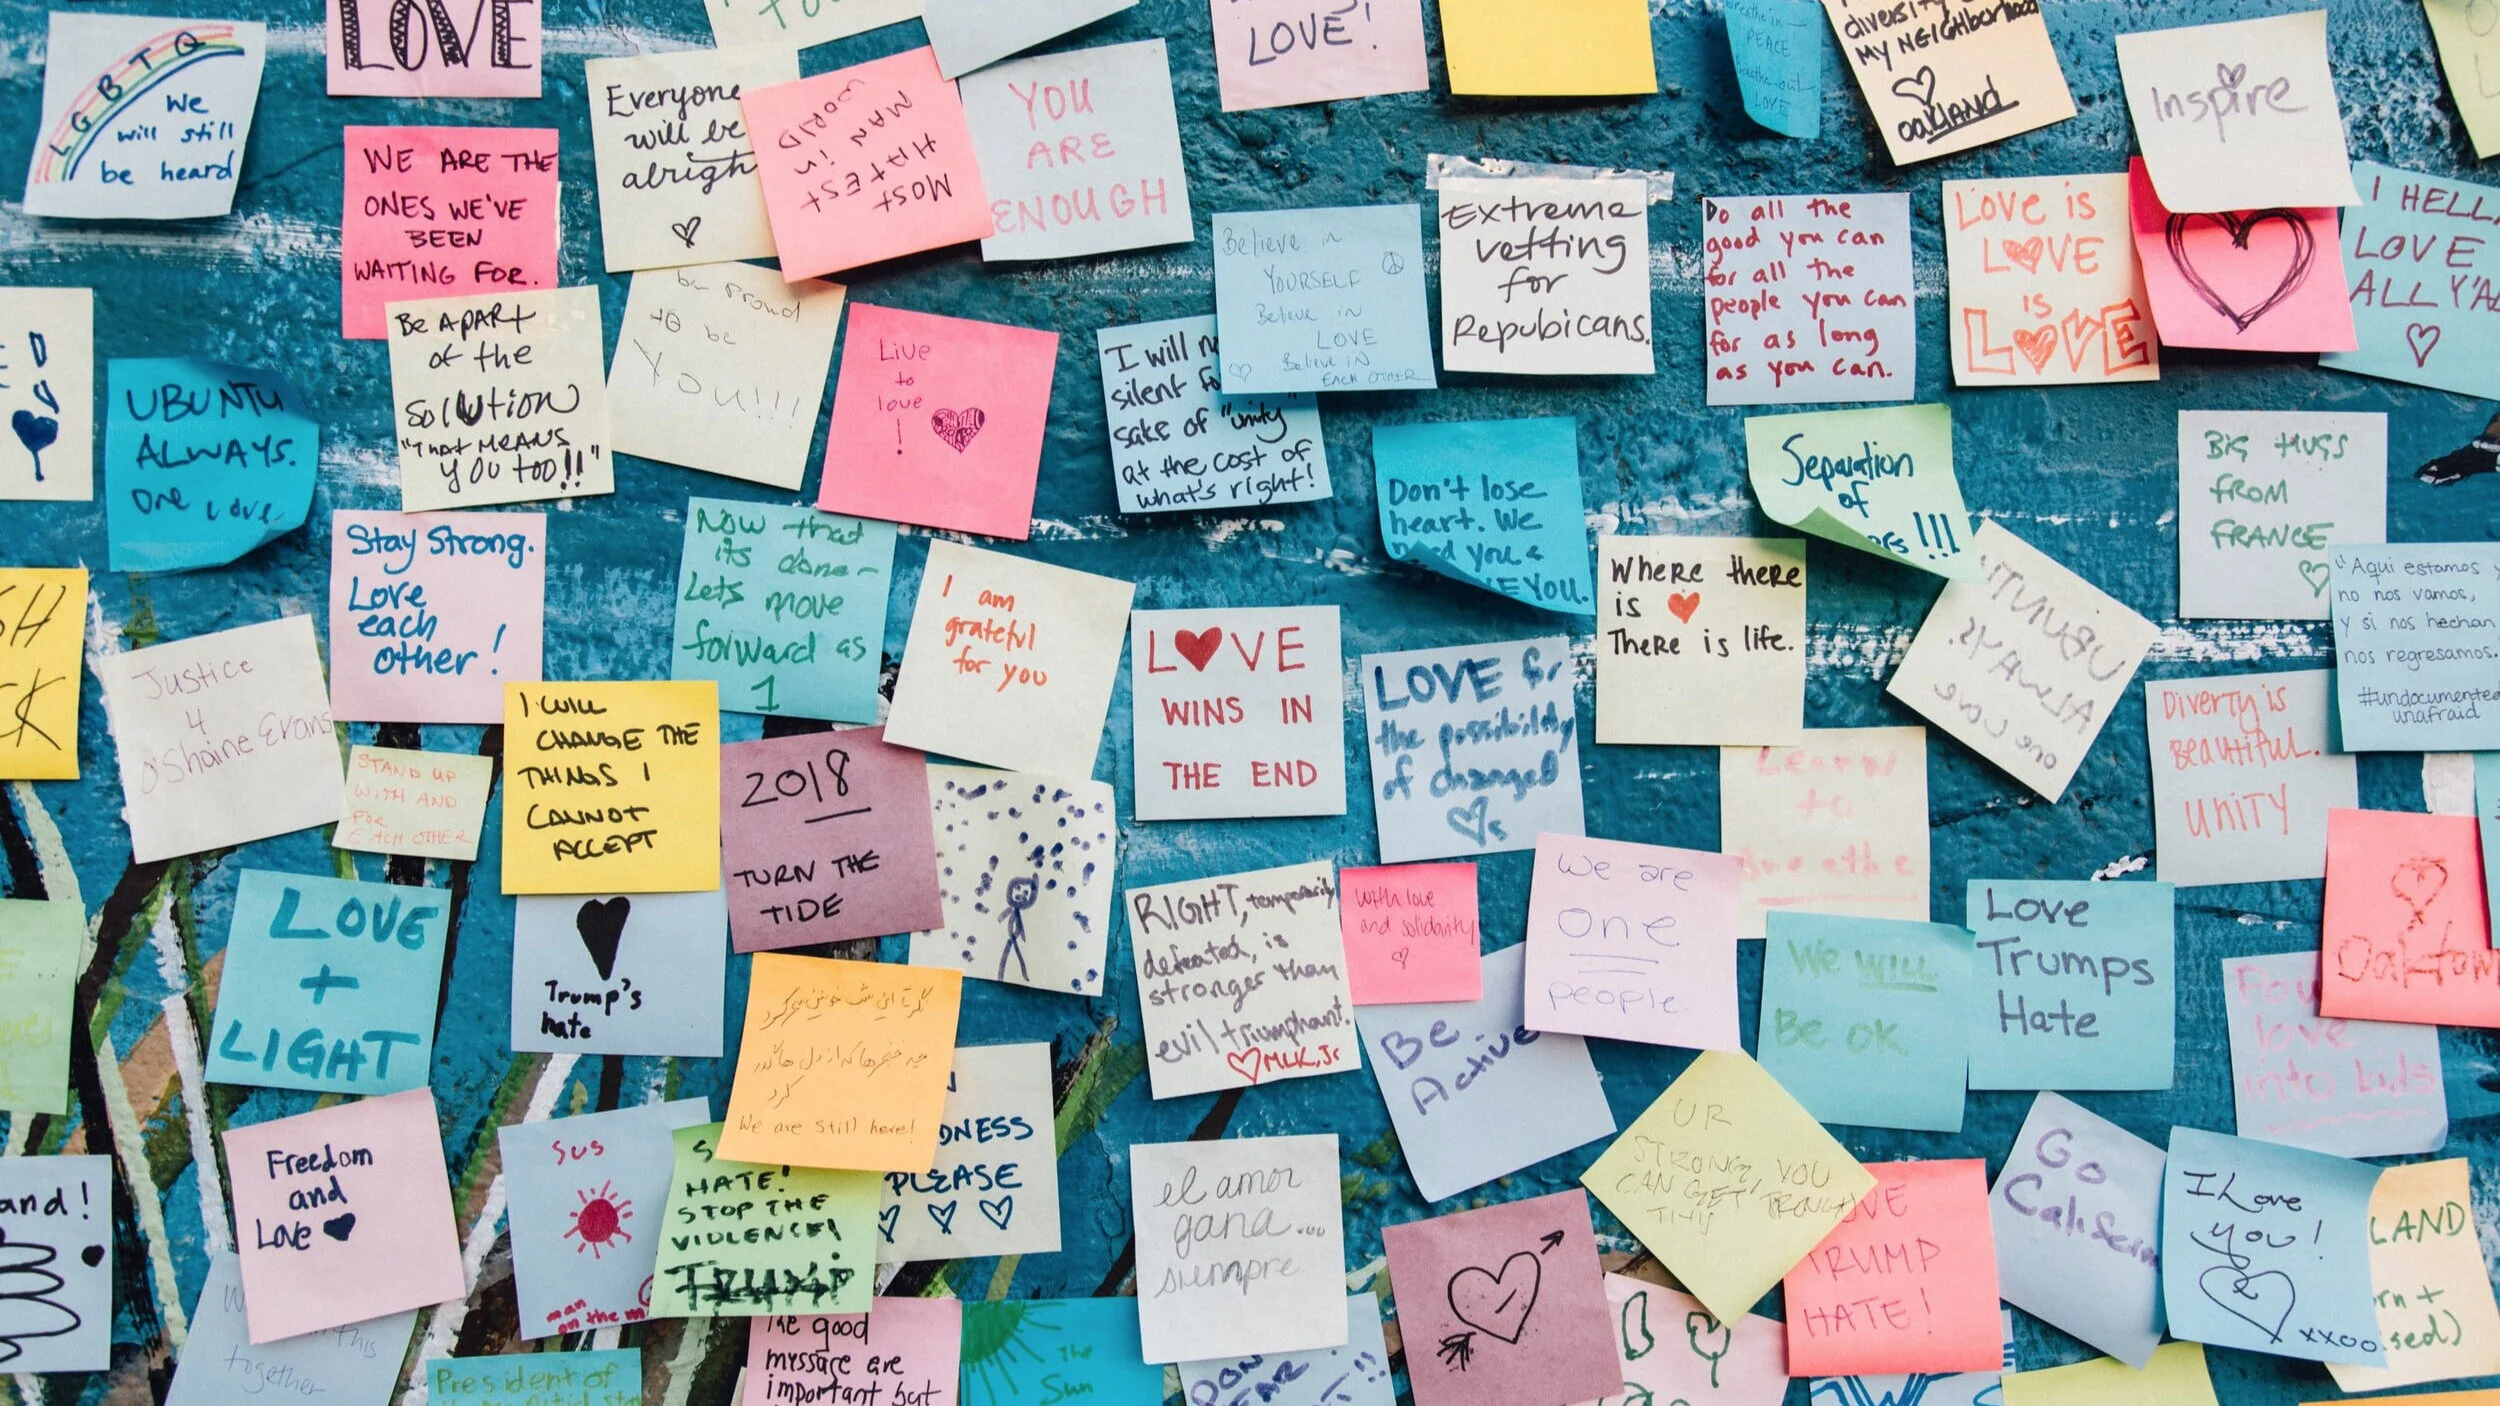 LGBTQ
we
will still
be heard
LOVE
WE ARE THE
ONES WE'VE
BEEN
WAITING FOR.
Everyone
will be
alright
MOST
HATEST
MAN in
WORLD
YOU
ARE
ENOUGH
LOVE!
Breathe in
PEACE
breathe out
LOVE
diversity
MY NEIGHborhood
oakLAND
Inspire
Be APART
of the
SOLUTION
"THAT MEANS
YOU TOO!!"
be proud
to be
You!!!
Live
to
love
!
I will
silent
sake of "unity"
at the cost of
what's right!
Believe in
YOURSELF
Believe in
LOVE
Believe IN
EACH OTHER
Extreme
vetting
for
Repubicans.
Do all the
good you can
for all the
people you can
for as long
as you can.
LOVE is
LOVE
is
LOVE
I HELLA
LOVE
ALL Y'ALL
UBUNTU
ALWAYS.
one Love
Stay Strong.
Love
each
other!
Now that
its done-
Lets move
forward as
1
I am
grateful
for you
Don't lose
heart. We
need you &
YOU.
Separation
of
!!!
BIG HUGS
FROM
FRANCE
Where there
is
There is life.
UBUNTU
ALWAYS.
one Love
"Aqui estamos y
no nos vamos,
y si nos hechan
nos regresamos.
#undocumented
unafraid
Justice
4
O'Shaine Evans
STAND UP
WITH AND
FOR
EACH OTHER
I WILL
CHANGE THE
THINGS I
CANNOT
ACCEPT
2018
TURN THE
TIDE
LOVE
WINS IN
THE END
LOVE &
the possibility
of changed
Learn
to
Breathe
Diverty is
Beautiful.
UNITY
LOVE
+
LIGHT
Trump's
hate
RIGHT, temporarily
defeated, is
stronger than
evil triumphant.
MLK, Jr
With love
and solidarity
We are
one
people.
Be
Active
We WILL
Be OK
Love
Trumps
Hate
Oaktown
love
into kids
We are still here!
Freedom
and
Love
SUS
man
on the
HATE!
STOP THE
VIOLENCE!
TRUMP
PLEASE
el amor
gana...
siempre
UR
STRONG, YOU
CAN GET TROUGH
THIS
TRUMP
HATE!
Go
I Love
you!
xxoo
LAND
and!
this
together
President of
The good
message are
important but
The
Sun